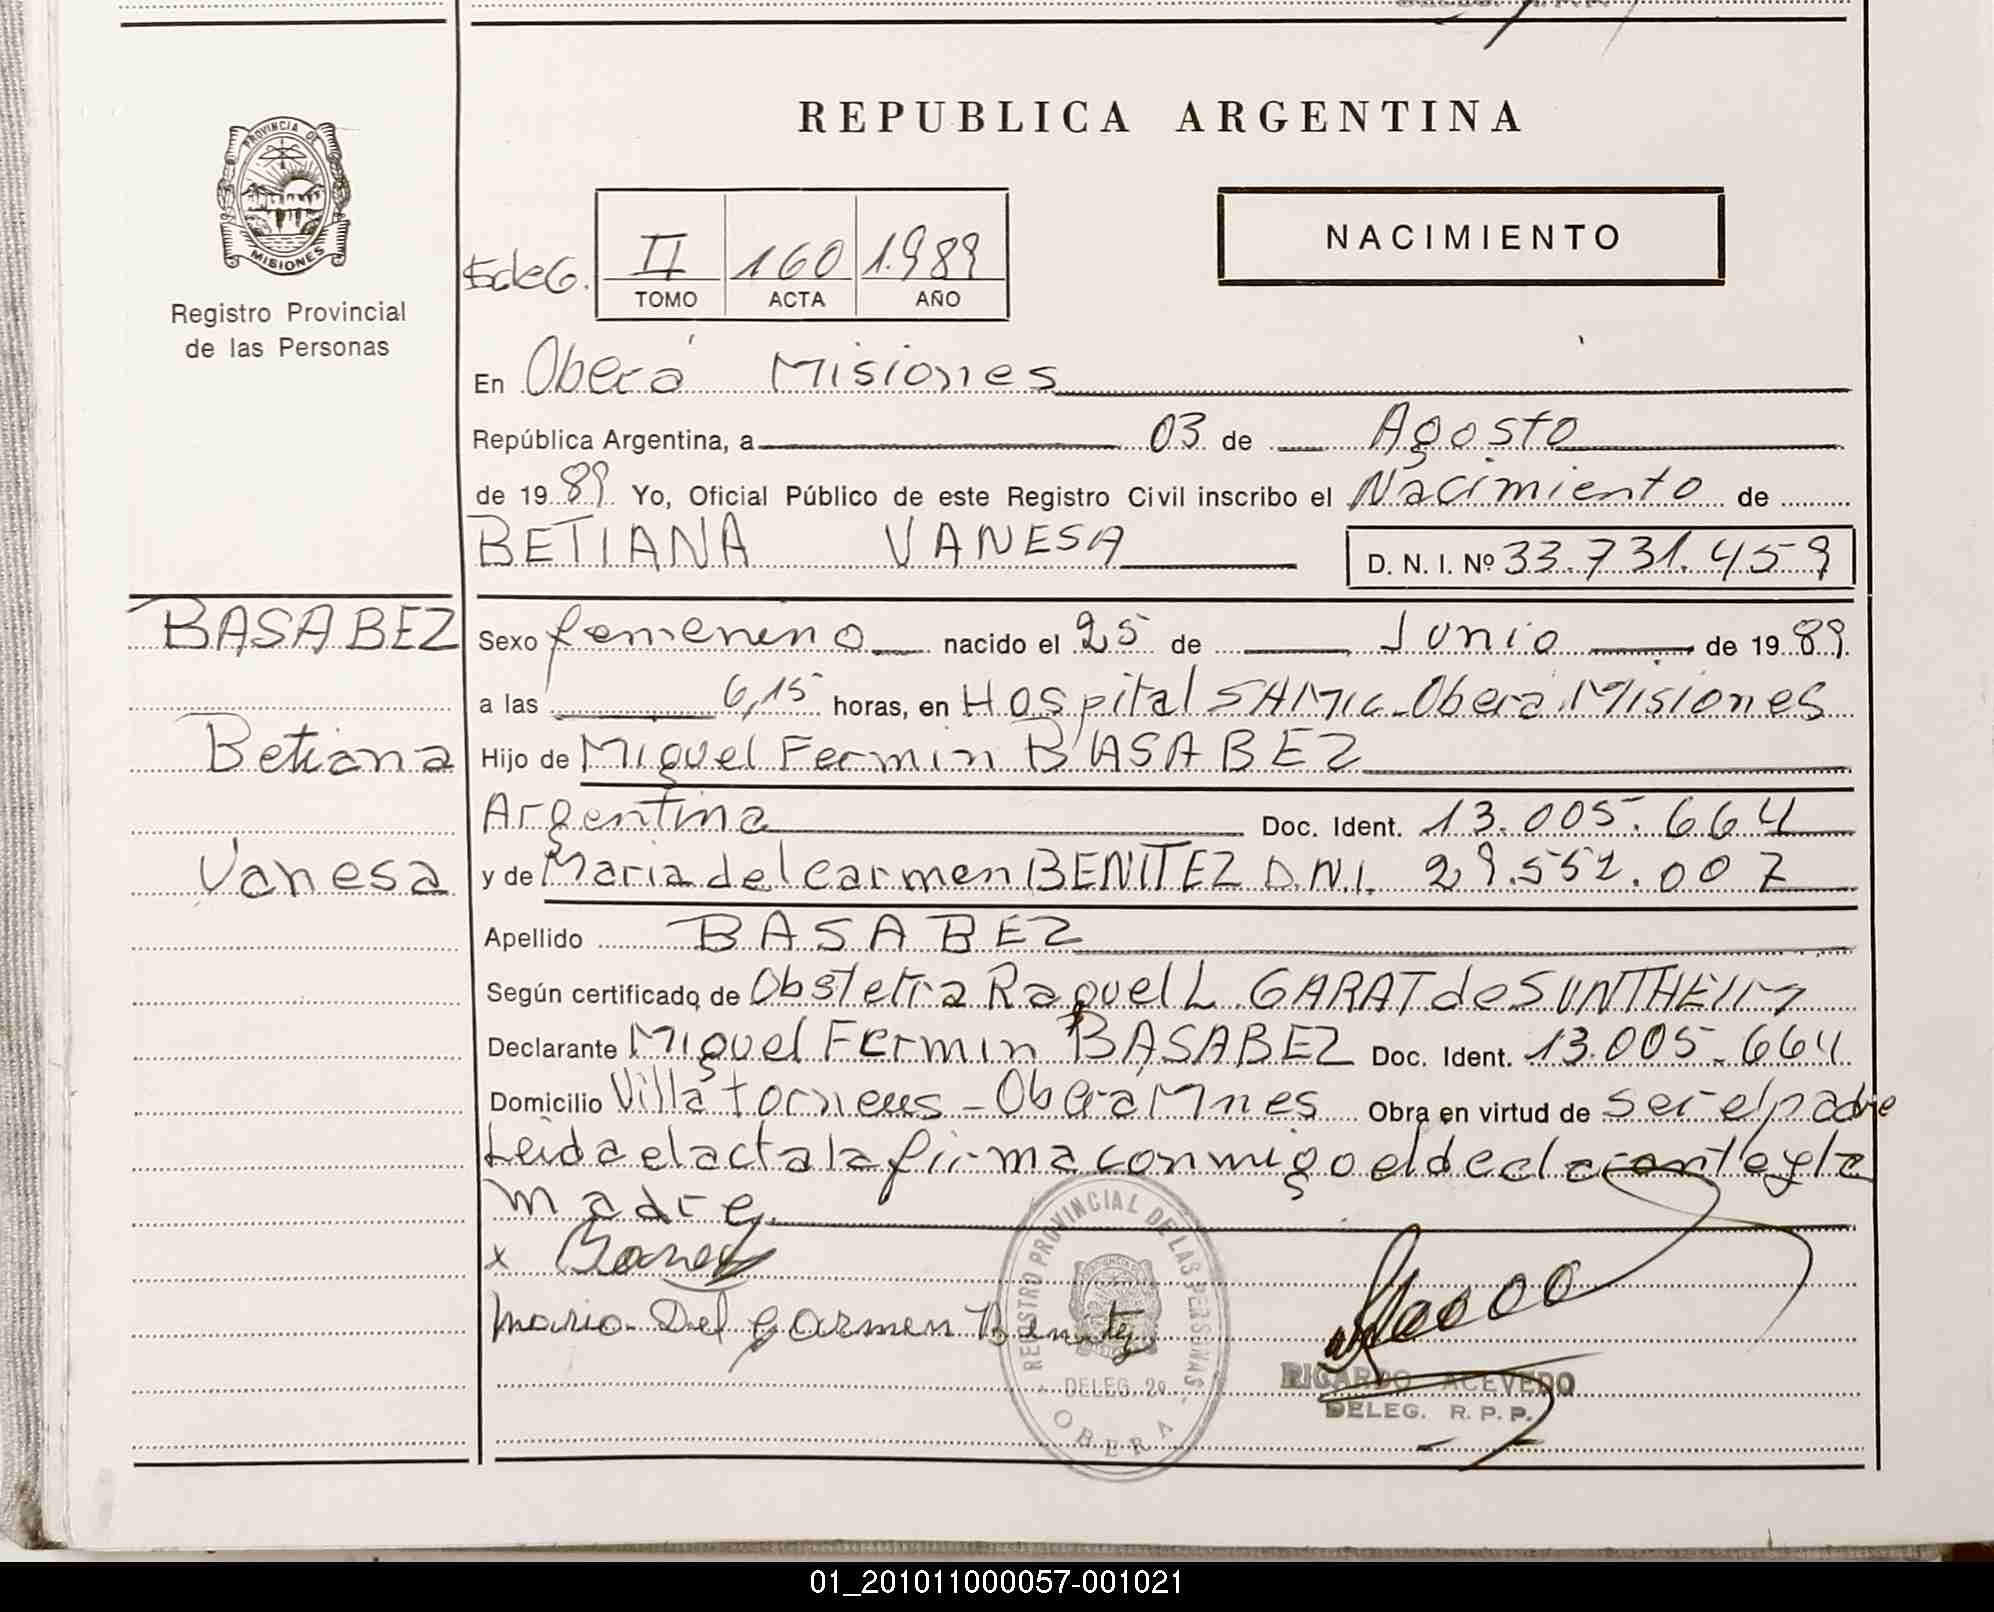 PROVINCIA DE
MISIONES
Registro Provincial
de las Personas
REPUBLICA ARGENTINA
NACIMIENTO
II 160 1.989
TOMO ACTA AÑO
En Oberá Misiones
República Argentina, a 03 de Agosto
de 1989 Yo, Oficial Público de este Registro Civil inscribo el Nacimiento de
BETIANA VANESA D. N. I. Nº 33.731.459
BASABEZ
Betiana
Vanesa
Sexo femenino nacido el 25 de Junio de 1989.
a las 6,15 horas, en Hospital SAMIC-Oberá Misiones
Hijo de Miguel Fermin BASABEZ
Argentina Doc. Ident. 13.005.664
y de Maria del Carmen BENITEZ D.N.I. 29.552.007
Apellido BASABEZ
Según certificado de Obstetra Raquel L. GARAT de SUNTHEIM
Declarante Miguel Fermin BASABEZ Doc. Ident. 13.005.664
Domicilio Villa torneus - Oberá Mnes Obra en virtud de ser el padre
Leida el acta la firma conmigo el declarante y la
madre.
x
Maria Del Carmen Benitez
REGISTRO PROVINCIAL DE LAS PERSONAS
DELEG. 2º
OBERA
RICARDO ACEVEDO
DELEG. R. P. P.
01_201011000057-001021